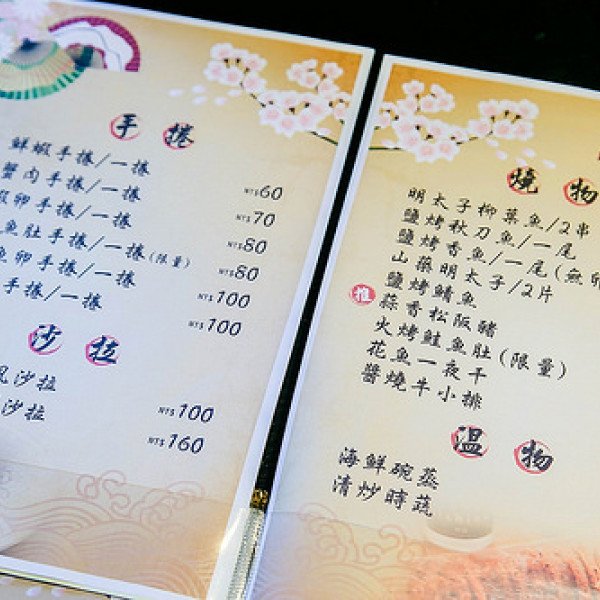 手捲
鮮蝦手捲/一捲 NT$60
蟹肉手捲/一捲 NT$70
蝦卵手捲/一捲 NT$80
魚肚手捲/一捲(限量) NT$80
魚卵手捲/一捲 NT$100
手捲/一捲 NT$100
沙拉
風沙拉 NT$100
沙拉 NT$160
燒物
明太子柳葉魚/2串
鹽烤秋刀魚/一尾
鹽烤香魚/一尾(無卵
山藥明太子/2片
鹽烤鯖魚
推 蒜香松阪豬
火烤鮭魚肚(限量)
花魚一夜干
醬燒牛小排
溫物
海鮮碗蒸
清炒時蔬